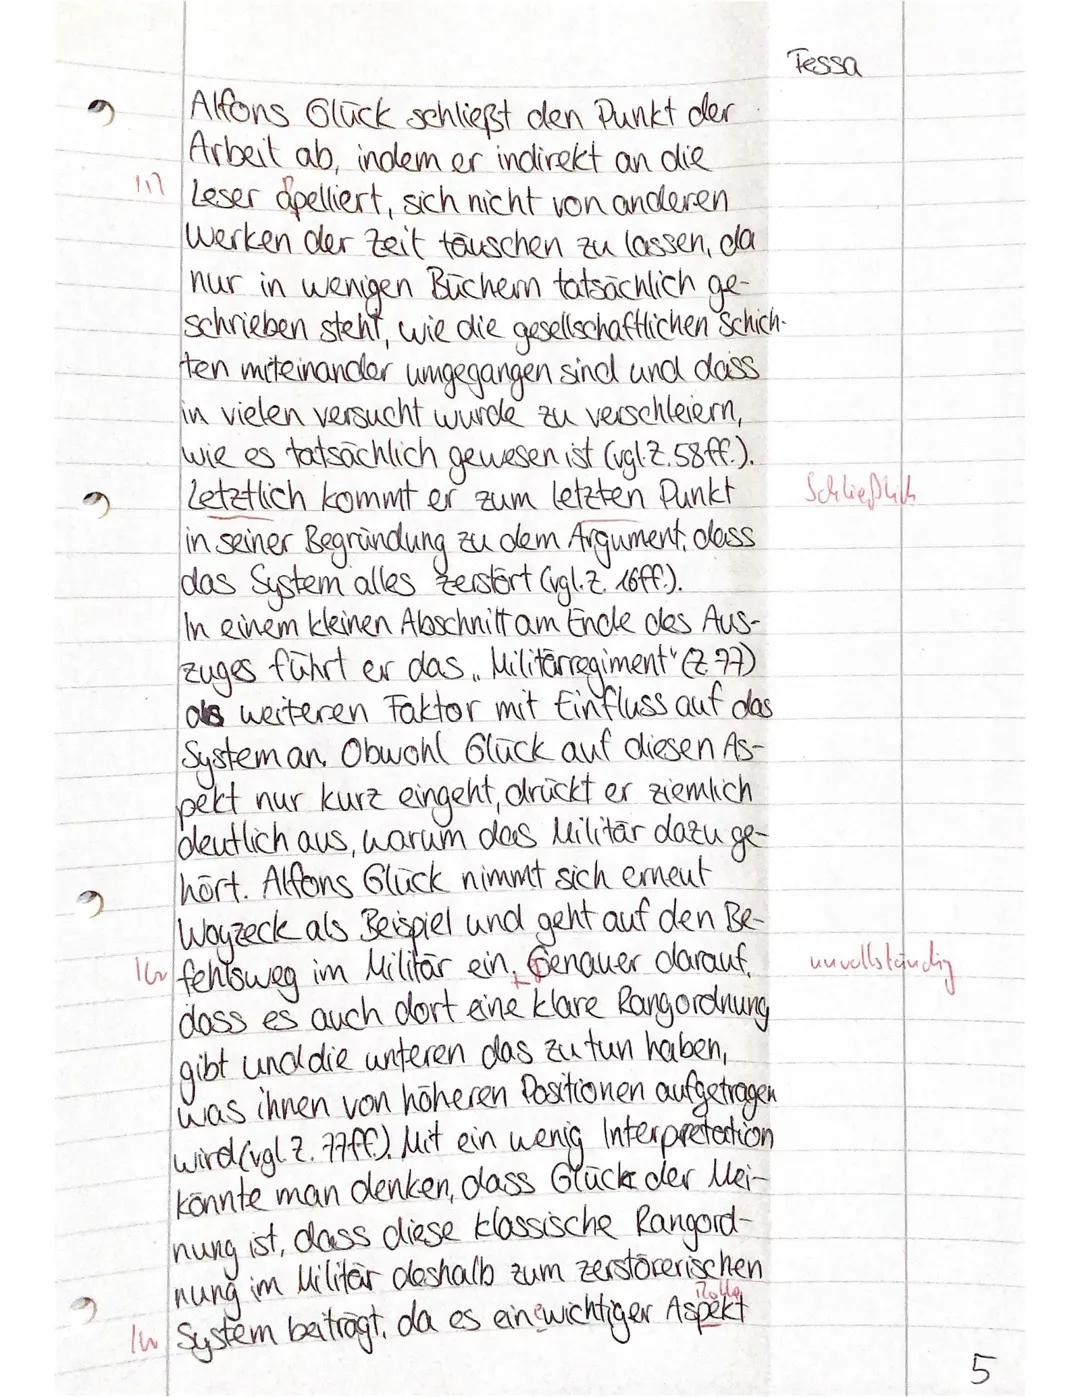 Tessa
Alfons Glück schließt den Punkt der
Arbeit ab, indem er indirekt an die
Leser apelliert, sich nicht von anderen
Werken der Zeit täuschen zu lassen, da
nur in wenigen Büchern tatsächlich ge-
schrieben steht, wie die gesellschaftlichen Schich-
ten miteinander umgegangen sind und dass
in vielen versucht wurde zu verschleiern,
wie es tatsächlich gewesen ist (vgl. Z. 58ff.).
Letztlich kommt er zum letzten Punkt Schließlich
in seiner Begründung zu dem Argument, dass
das System alles zerstört (vgl. Z. 16ff.).
In einem kleinen Abschnitt am Ende des Aus-
zuges führt er das „Militärregiment" (Z. 77)
als weiteren Faktor mit Einfluss auf das
System an. Obwohl Glück auf diesen As-
pekt nur kurz eingeht, drückt er ziemlich
deutlich aus, warum das Militär dazu ge-
hört. Alfons Glück nimmt sich erneut
Woyzeck als Beispiel und geht auf den Be-
fehlsweg im Militär ein. Genauer darauf, unvollständig
dass es auch dort eine klare Rangordnung
gibt und die unteren das zu tun haben,
was ihnen von höheren Positionen aufgetragen
wird (vgl. Z. 77ff.). Mit ein wenig Interpretation
könnte man denken, dass Glück der Mei-
nung ist, dass diese klassische Rangord-
nung im Militär deshalb zum zerstörerischen
Rolle
System beiträgt, da es ein wichtiger Aspekt
5